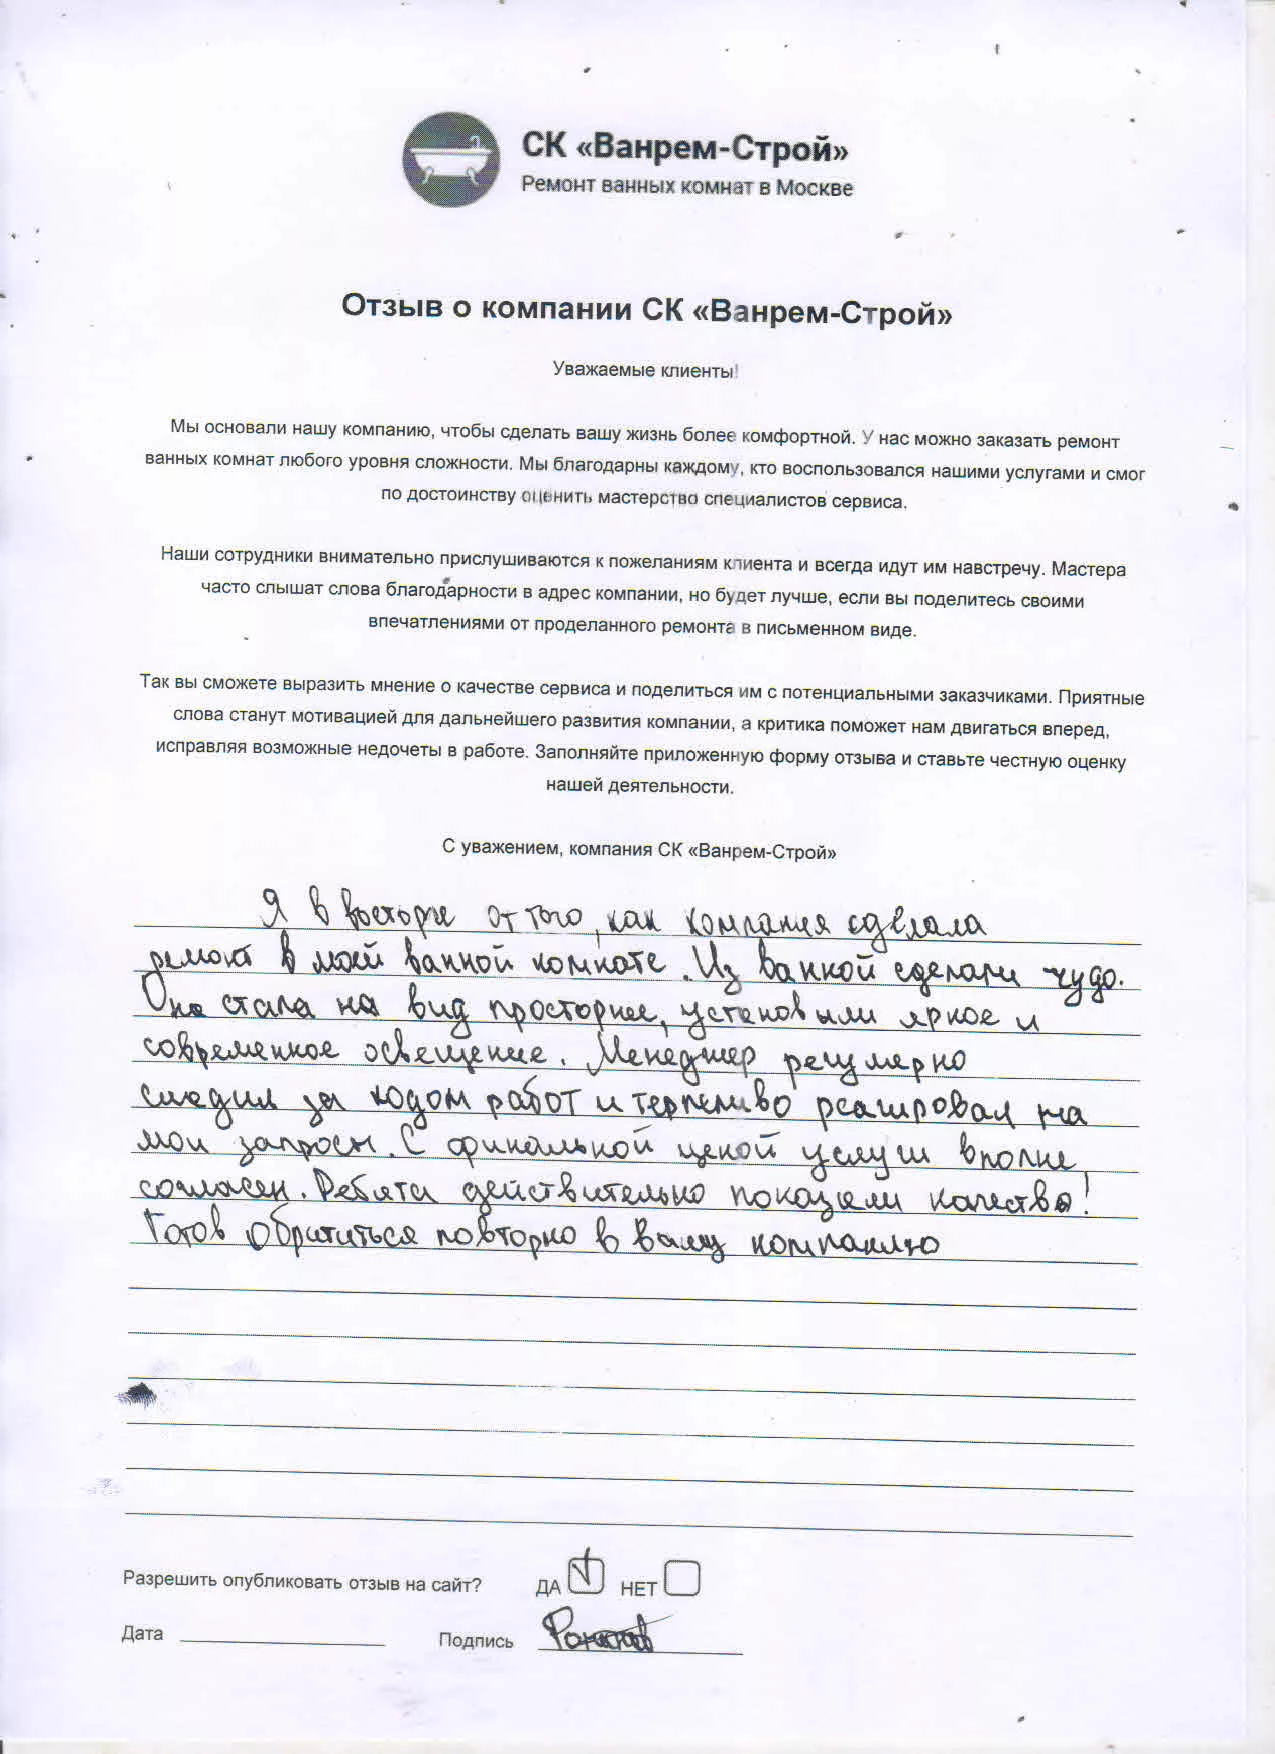 СК «Ванрем-Строй»
Ремонт ванных комнат в Москве
Отзыв о компании СК «Ванрем-Строй»
Уважаемые клиенты!
Мы основали нашу компанию, чтобы сделать вашу жизнь более комфортной. У нас можно заказать ремонт
ванных комнат любого уровня сложности. Мы благодарны каждому, кто воспользовался нашими услугами и смог
по достоинству оценить мастерство специалистов сервиса.
Наши сотрудники внимательно прислушиваются к пожеланиям клиента и всегда идут им навстречу. Мастера
часто слышат слова благодарности в адрес компании, но будет лучше, если вы поделитесь своими
впечатлениями от проделанного ремонта в письменном виде.
Так вы сможете выразить мнение о качестве сервиса и поделиться им с потенциальными заказчиками. Приятные
слова станут мотивацией для дальнейшего развития компании, а критика поможет нам двигаться вперед,
исправляя возможные недочеты в работе. Заполняйте приложенную форму отзыва и ставьте честную оценку
нашей деятельности.
С уважением, компания СК «Ванрем-Строй»
Я в восторге от того, как компания сделала
ремонт в моей ванной комнате. Из ванной сделали чудо.
Она стала на вид просторнее, установили яркое и
современное освещение. Менеджер регулярно
следил за ходом работ и терпеливо реагировал на
мои запросы. С финальной ценой услуги вполне
согласен. Ребята действительно показали качество!
Готов обратиться повторно в вашу компанию
Разрешить опубликовать отзыв на сайт? ДА НЕТ
Дата Подпись